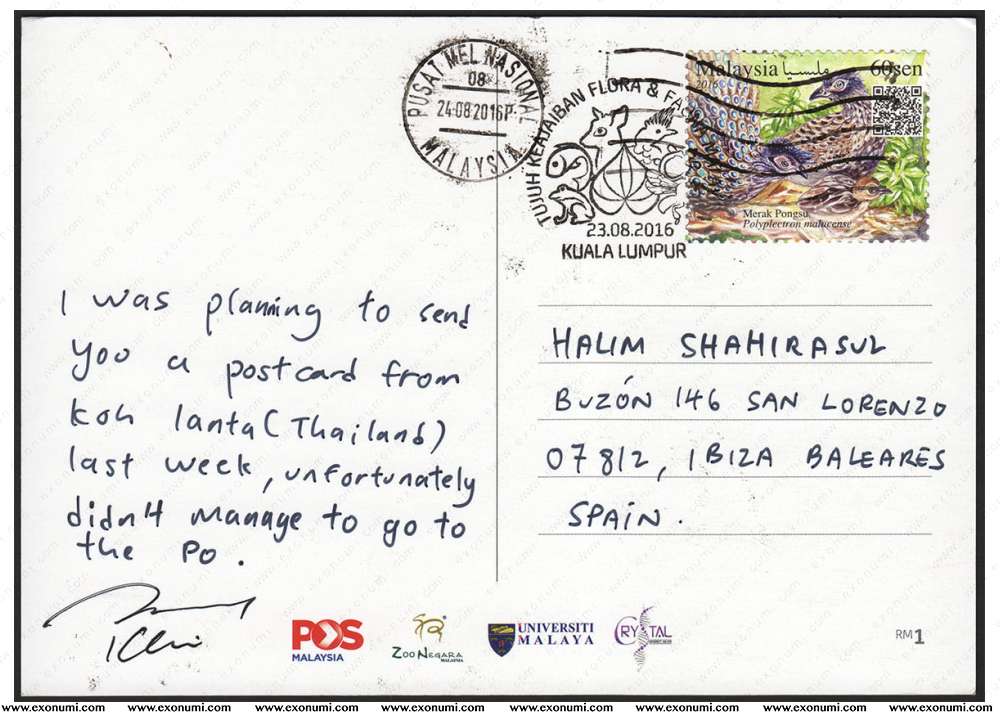 PUSAT MEL NASIONAL
08
24-08 2016 P
MALAYSIA
TUJUH KEAJAIBAN FLORA &
23.08.2016
KUALA LUMPUR
Malaysia مليسيا 60sen
2016
Merak Pongsu
Polyplectron malacense
I was planning to send
you a postcard from
Koh lanta (Thailand)
last week, unfortunately
didn't manage to go to
the Po.
HALIM SHAHIRASUL
BUZÓN 146 SAN LORENZO
07812, IBIZA BALEARES
SPAIN.
POS
MALAYSIA
ZOO NEGARA
MALAYSIA
UNIVERSITI
MALAYA
CRYSTAL
RM1
www.exonumi.com www.exonumi.com www.exonumi.com www.exonumi.com www.exonumi.com www.exonumi.com www.exonumi.com www.exonumi.com